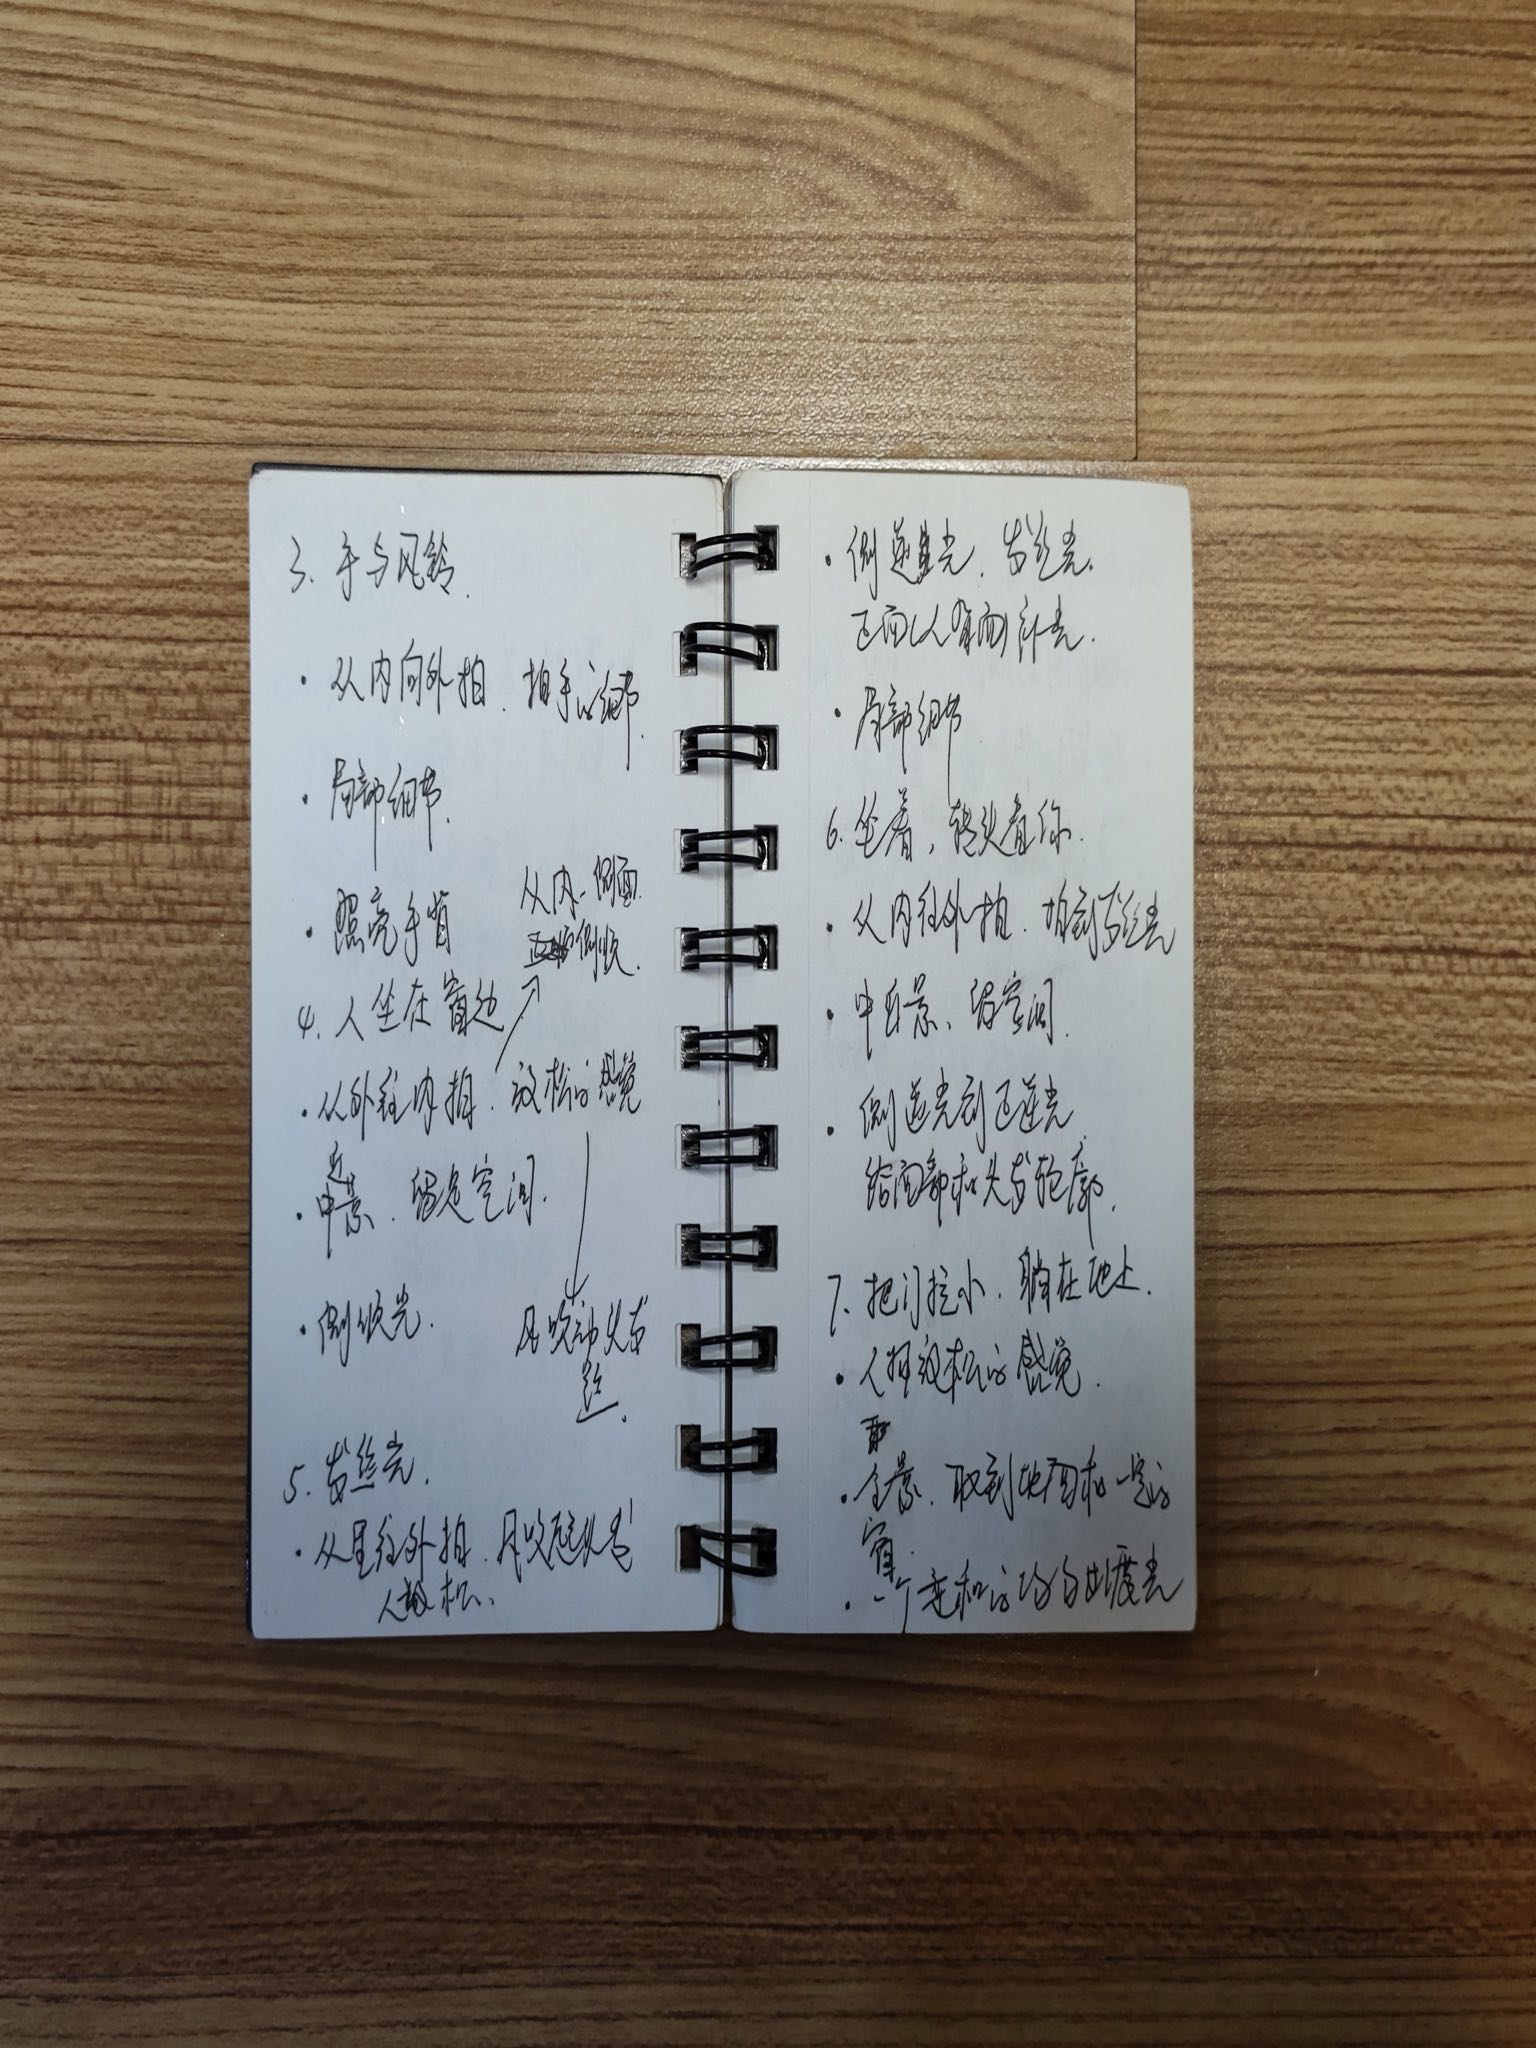 3. 手与风铃.
· 从内向外拍. 拍手的细节.
· 局部细节.
· 照亮手肯
从内-侧面.
侧顺.
4. 人坐在窗边
· 从外往内拍. 放松的感觉
近
· 中景. 留足空间.
· 侧顺光.
风吹动头发
5. 发丝光.
· 从里往外拍. 风吹起头发
人放松.
· 侧逆光. 发丝光.
正面(人背面)补光.
· 局部细节
6. 坐着, 转头看你.
· 从内往外拍. 拍到发丝光
· 中景、留空间.
· 侧逆光到正逆光
给面部和头发轮廓.
7. 把门拉小. 躺在地上.
· 人物放松的感觉.
取
· 全景. 取到地面和一定的
窗.
· 一个柔和的均匀出度光